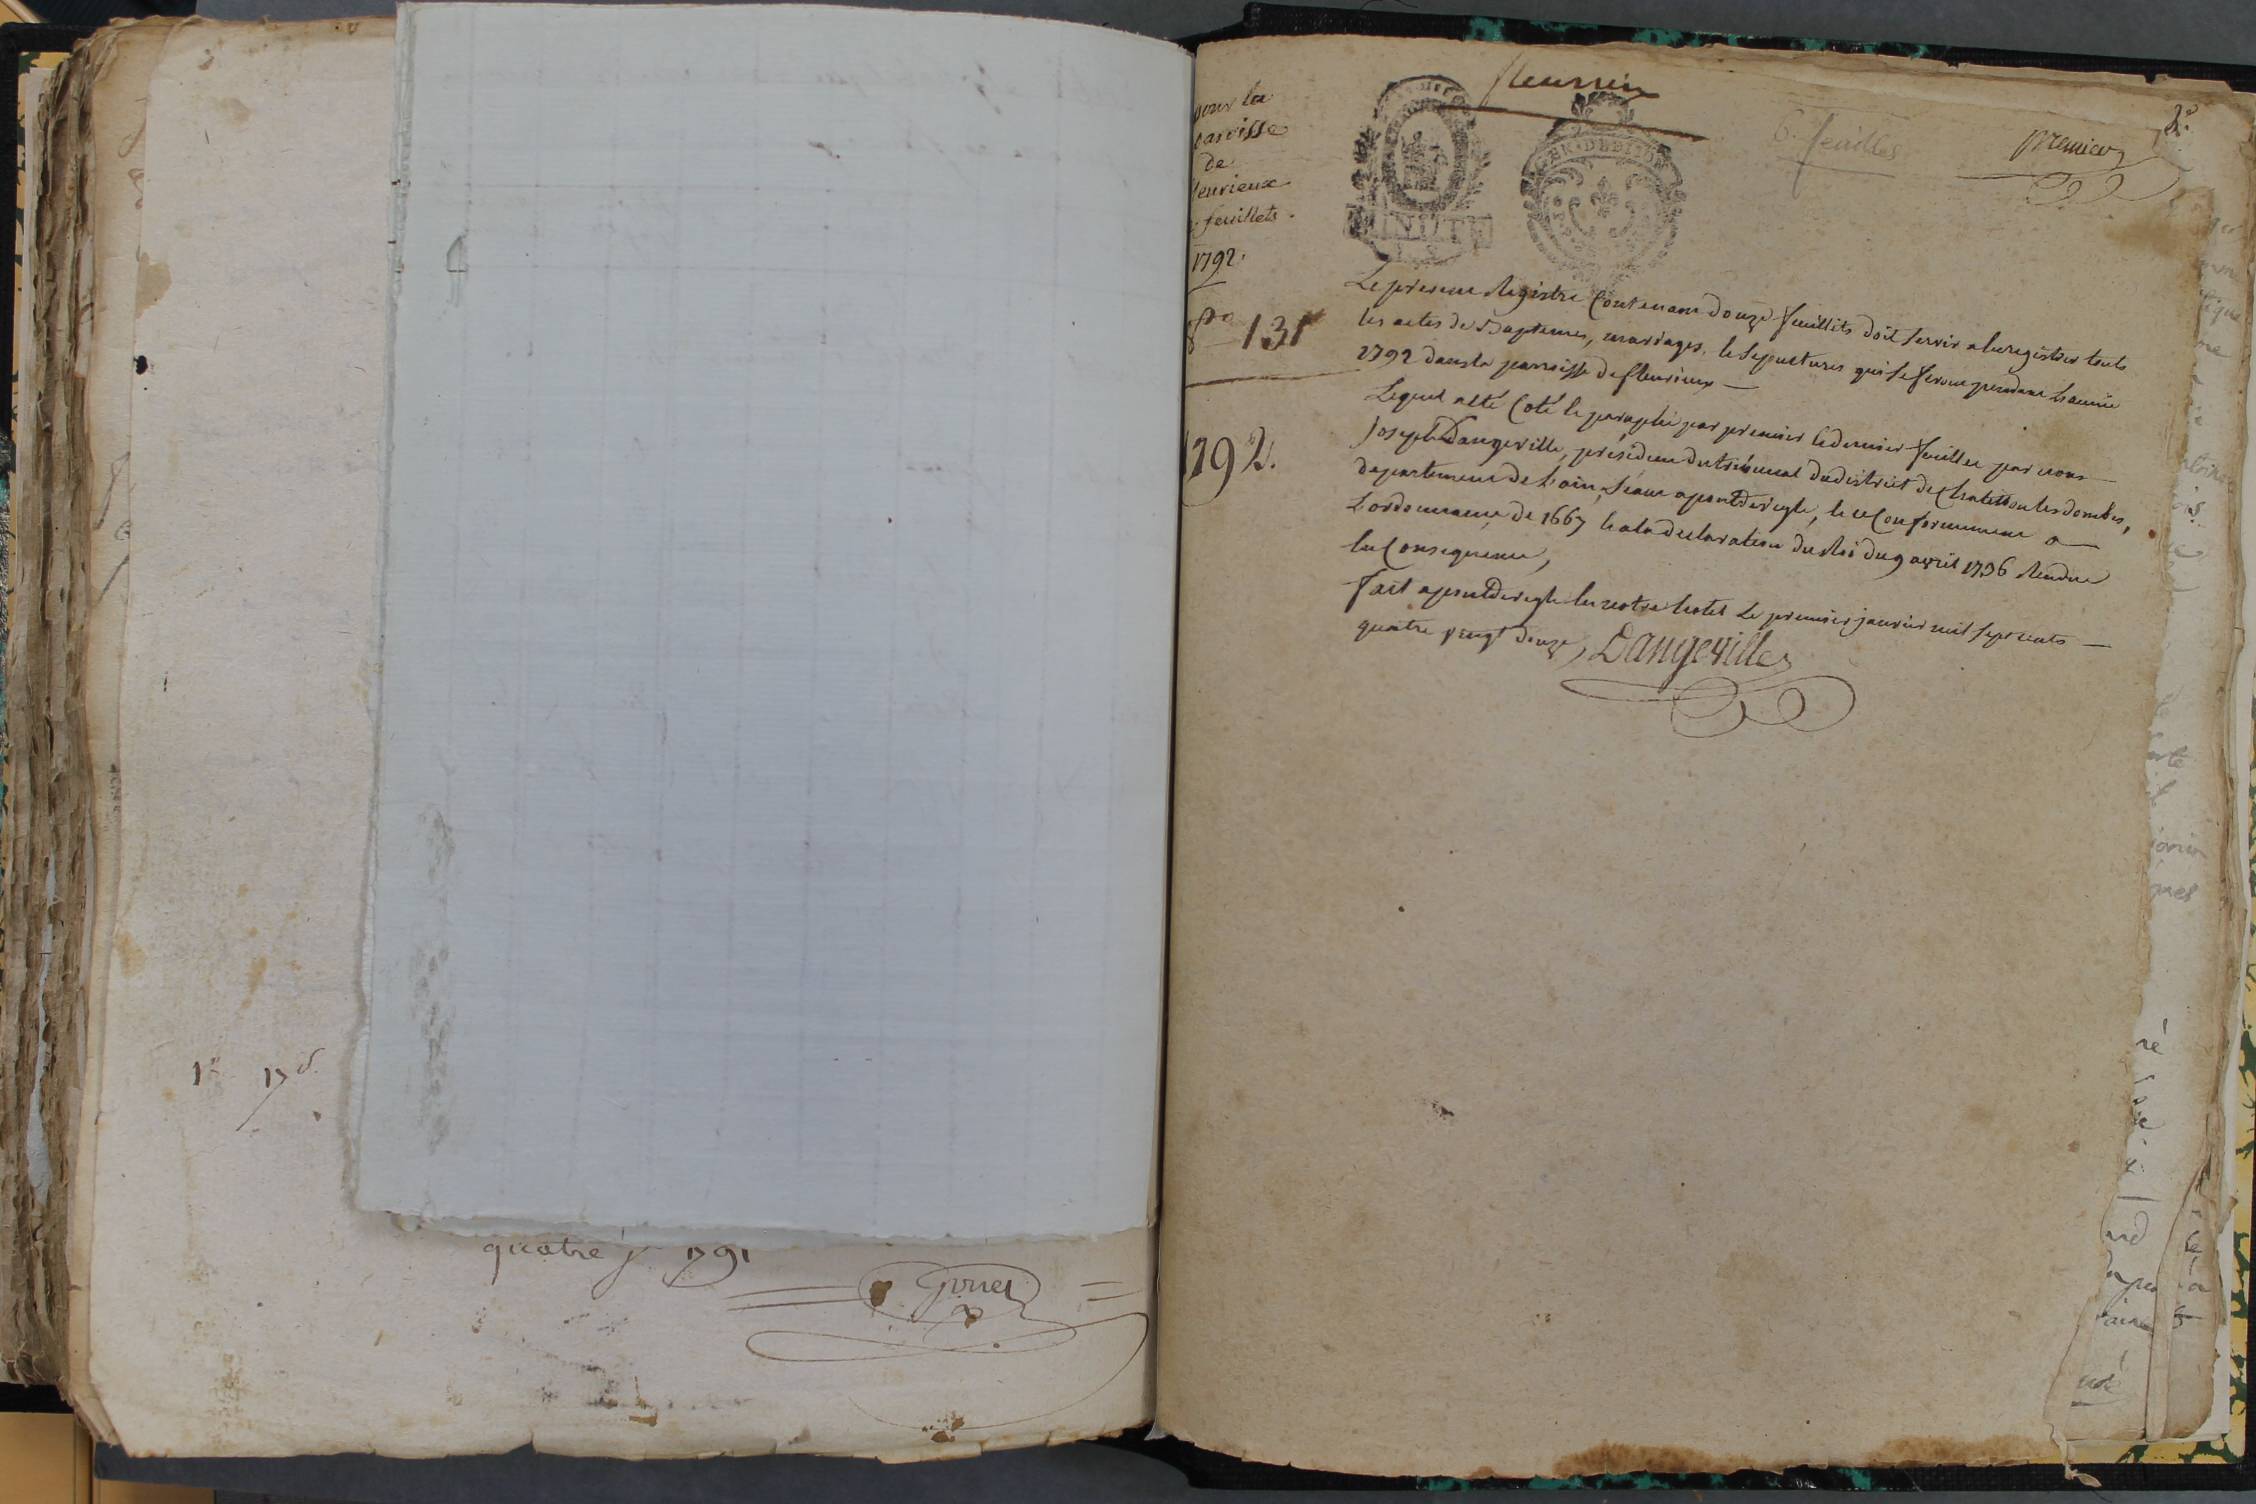 quatre 1791
pour la
paroisse
de
fleurieux
feuillets.
1792.
131
1792.
fleurieux
MINUTE
GEN. DE DIJON
6. feuilles
premier
Le present Registre Contenant douze feuillets doit servir a Enregistrer touts
les actes de Baptemes, mariages, Et Sepultures qui se feront pendant L'année
1792 dans la parroisse de fleurieux —
Lequel a été Coté Et paraphé par premier Et dernier feuillet par nous —
Joseph Dangeville, président du tribunal du district de Chatillon les dombes,
departement de L'ain, Seant a pontdevesle, Et ce Conformement a —
L'ordonnance de 1667 Et a la declaration du Roi du 9 avril 1736 Rendue
En Consequence,
fait a pontdevesle En notre hotel Le premier janvier mil sept cents —
quatre vingt douze, Dangeville